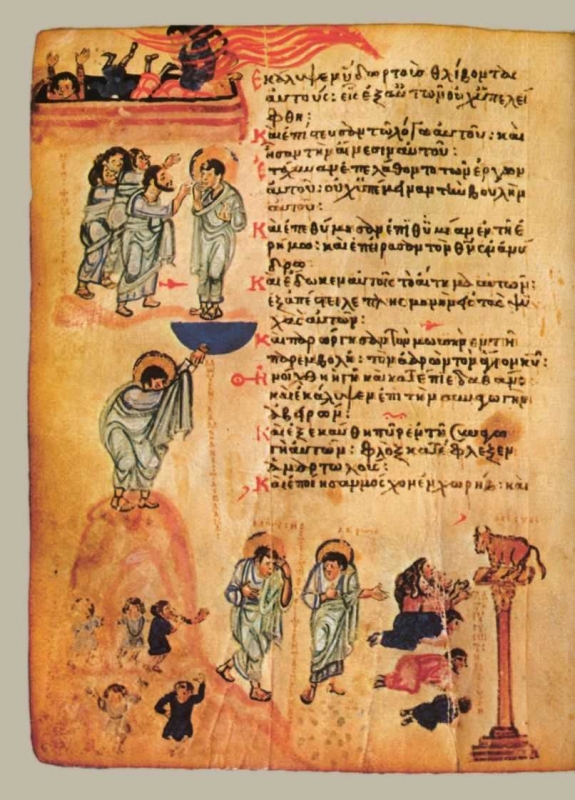 Ἐκάλυψεν ὕδωρ τοὺς θλίβοντας
αὐτούς: εἷς ἐξ αὐτῶν οὐχ ὑπελεί
φθη:
Καὶ ἐπίστευσαν τῷ λόγῳ αὐτοῦ: καὶ
ᾖσαν τὴν αἴνεσιν αὐτοῦ:
Ἐτάχυναν ἐπελάθοντο τῶν ἔργων
αὐτοῦ: οὐχ ὑπέμειναν τὴν βουλὴν
αὐτοῦ:
Καὶ ἐπεθύμησαν ἐπιθυμίαν ἐν τῇ ἐ
ρήμῳ: καὶ ἐπείρασαν τὸν θν ἐν ἀνύ
δρῳ
Καὶ ἔδωκεν αὐτοῖς τὸ αἴτημα αὐτῶν:
ἐξαπέστειλε πλησμονὴν εἰς τὰς ψυ
χὰς αὐτῶν:
Καὶ παρώργισαν τὸν μωυσῆν ἐν τῇ
παρεμβολῇ: τὸν ἀαρὼν τὸν ἅγιον κυ:
Ἠνοίχθη ἡ γῆ καὶ κατέπιε δαθάν:
καὶ ἐκάλυψεν ἐπὶ τὴν συναγωγὴν
ἀβηρών:
Καὶ ἐξεκαύθη πῦρ ἐν τῇ συναγω
γῇ αὐτῶν: φλὸξ κατέφλεξεν
ἁμαρτωλούς:
Καὶ ἐποίησαν μόσχον ἐν χωρήβ: καὶ